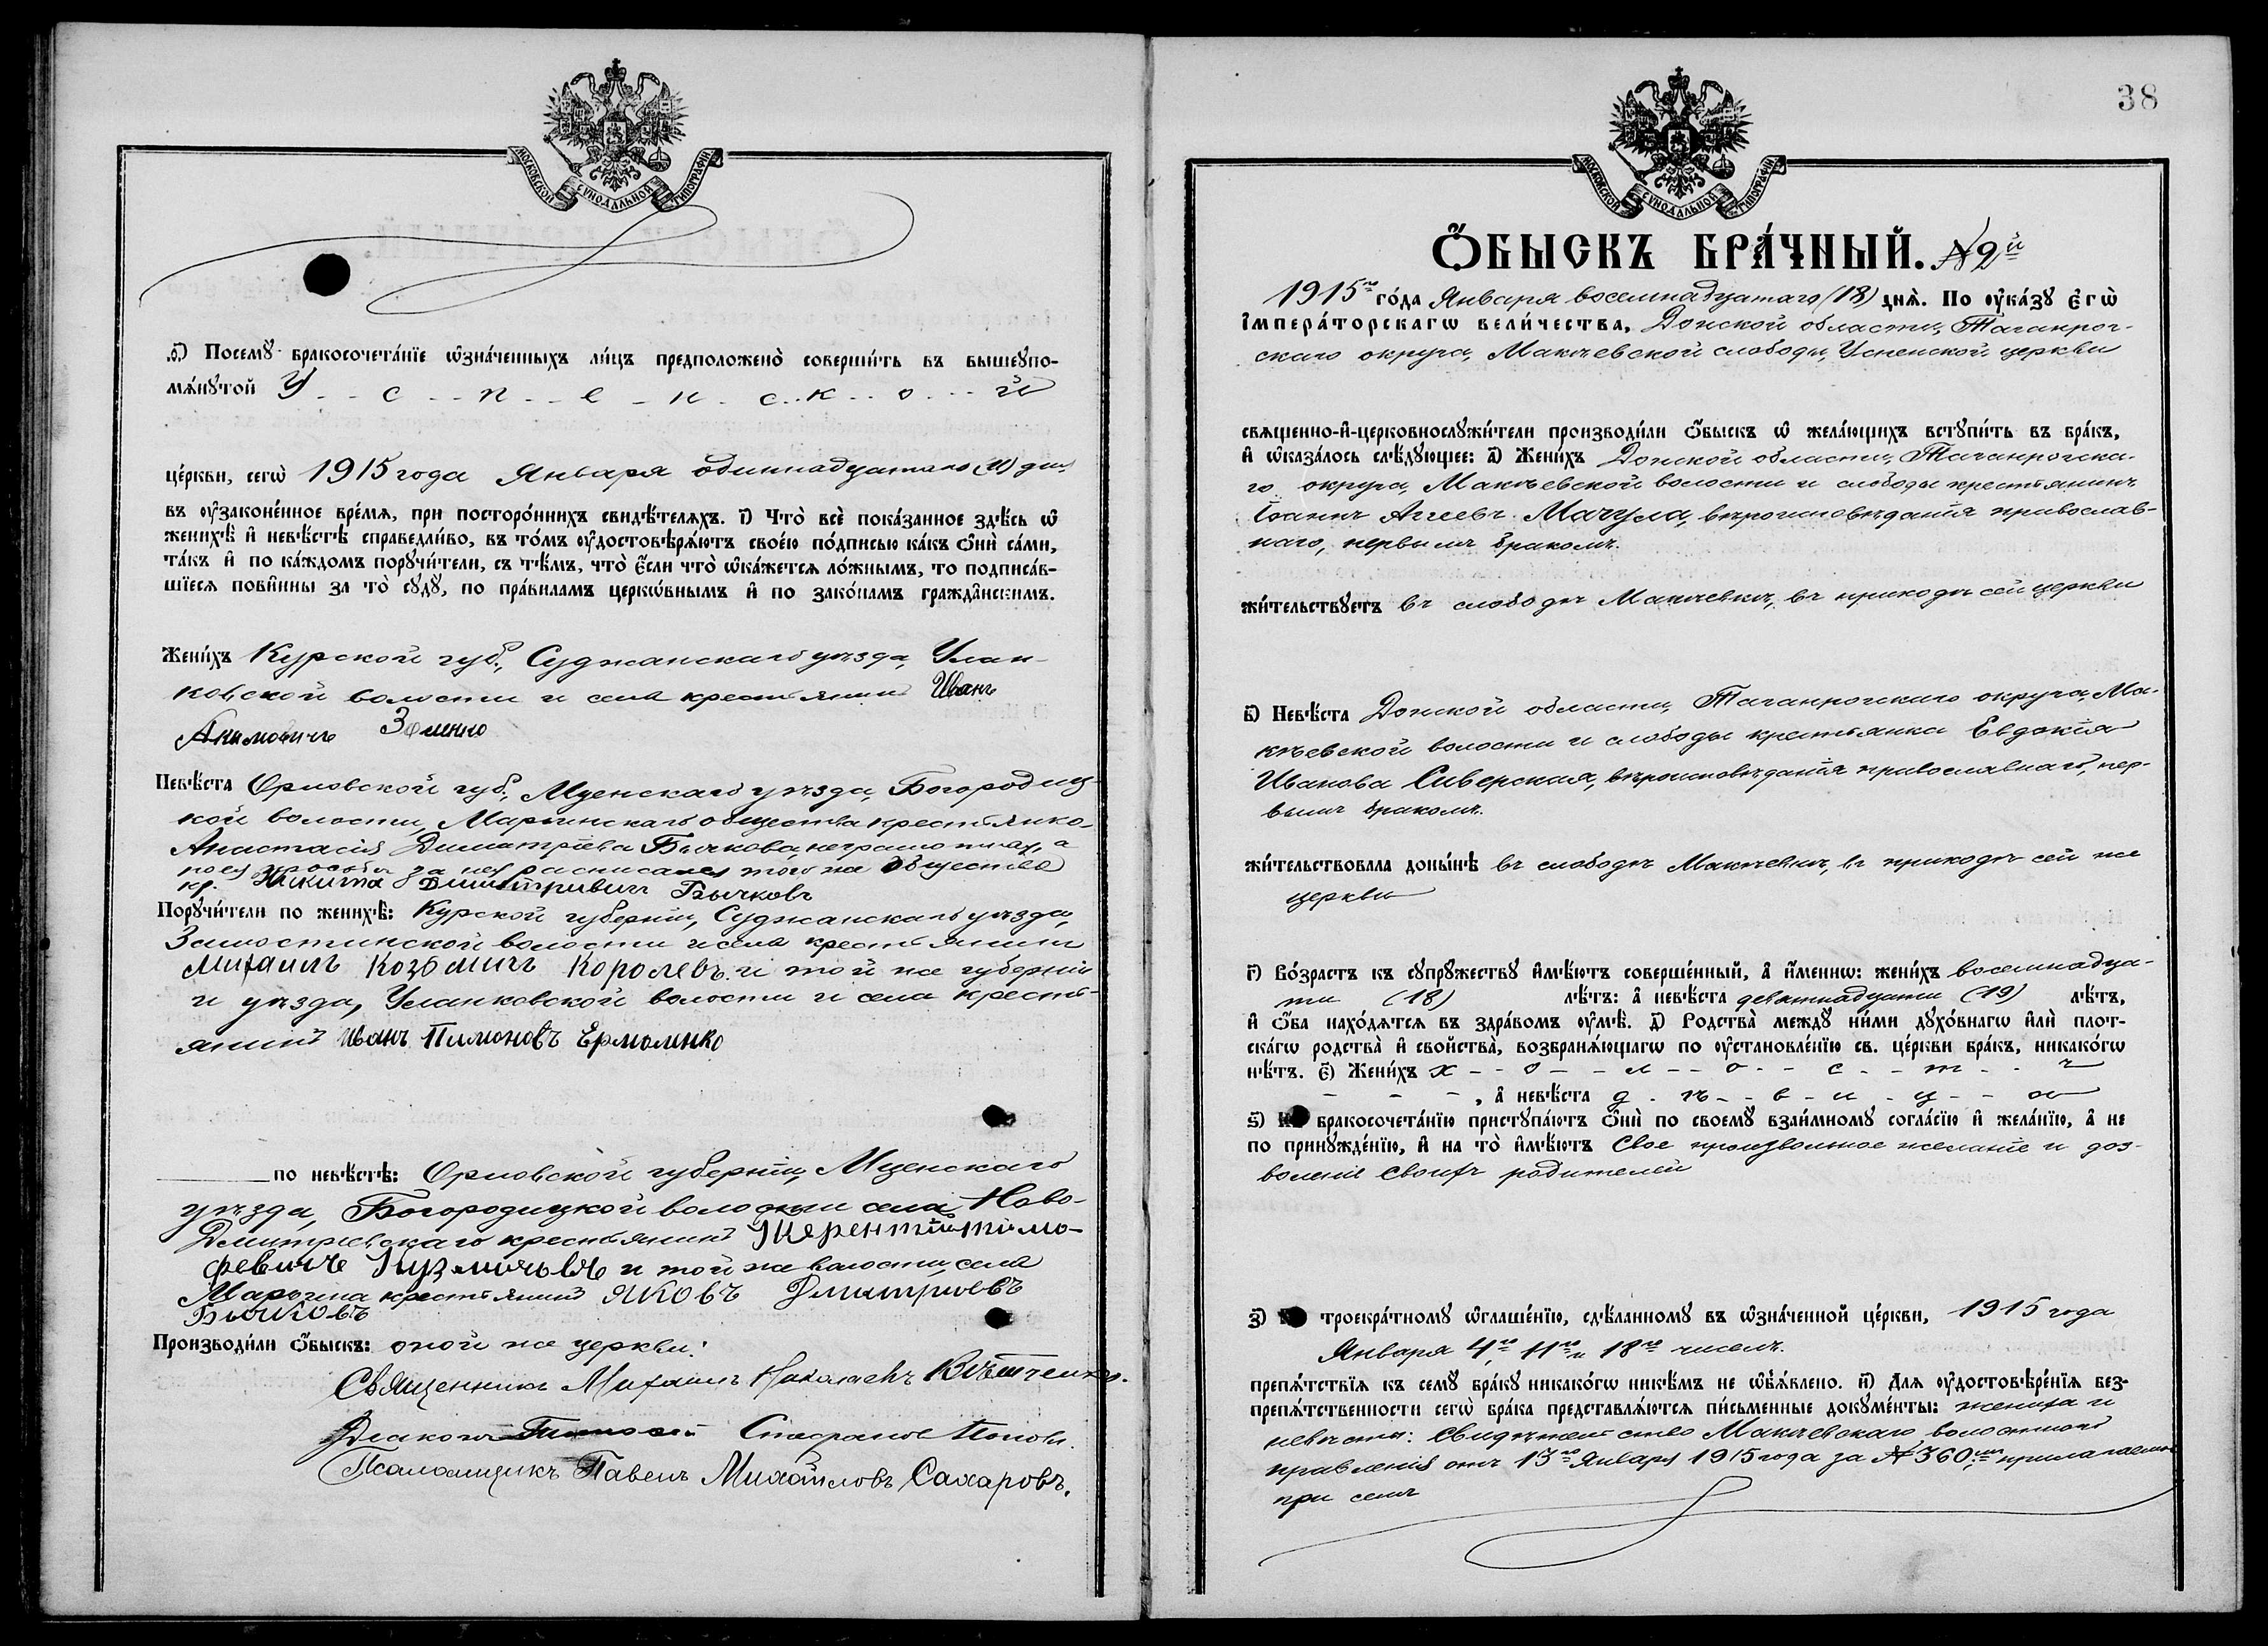 МОСКОВСКОЙ СѴНОДАЛЬНОЙ ТИПОГРАФІИ
.ѳ҃) Посемꙋ бракосочета́нїе ѡ҆зна́ченныхъ ли́цъ предположено̀ соверши́ть въ вышеꙋпо-
мѧ́нꙋтой У - - с - - п - - е - н - с - - к - - о - - - й
це́ркви, сегѡ̀ 1915 года Января одиннадцатаго (11) дня
въ ᲂу҆законе́нное вре́мѧ, при посторо́ннихъ свидѣ́телѧхъ. і҃) Что̀ всѐ пока́занное здѣ́сь ѡ҆
женихѣ̀ и҆ невѣ́стѣ справедли́во, въ то́мъ ᲂу҆достовѣрѧ́ютъ свое́ю по́дписью ка́къ ѻ҆нѝ са́ми,
та́къ и҆ по ка́ждомъ порꙋчи́тели, съ тѣ́мъ, что̀ є҆́сли что̀ ѡ҆ка́жетсѧ ло́жнымъ, то подписа́в-
шїесѧ пови́нны за то̀ сꙋдꙋ̀, по пра́виламъ церко́внымъ и҆ по зако́намъ гражда́нскимъ.
Жени́хъ Курской губ., Суджанскаго уѣзда, Улан-
ковской волости и села крестьянинъ Иванъ
Акимовичъ
Невѣ́ста Орловской губ., Мценскаго уѣзда, Богородиц-
кой волости, Марьинскаго общества крестьянка
Анастасія Димитріева Бычкова, неграмотная, а
по ея просьбѣ за нея расписался того же общества
кр. Никита Димитривичъ Бычковъ
Порꙋчи́тели по женихѣ̀: Курской губерніи, Суджанскаго уѣзда,
Замостинской волости и села крестьянинъ
Михаилъ Козьмичъ Королевъ и той же губерніи
и уѣзда, Уланковской волости и села кресть-
янинъ Иванъ Пимоновъ Ермоленко
по невѣ́стѣ: Орловской губерніи, Мценскаго
уѣзда, Богородицкой волости села Ново-
Димитріевскаго крестьянинъ Терентій Тимо-
февичъ и той же волости, села
Марьина крестьянинъ Яковъ Дмитриевъ
Бычковъ
Производи́ли ѻ҆́быскъ: оной же церкви:
Священникъ Михаилъ Николаевъ
Діаконъ Стефановъ Поповъ.
Псаломщикъ Павелъ Михайловъ Сахаровъ.
38
МОСКОВСКОЙ СѴНОДАЛЬНОЙ ТИПОГРАФІИ
Ѻ҆́БЫСКЪ БРА́ЧНЫЙ. № 2й
1915го го́да Января восемнадцатаго (18) днѧ̀. По ᲂу҆ка́зꙋ є҆гѡ̀
і҆мпера́торскагѡ вели́чества, Донской области, Таганрог-
скаго округа, Макѣевской слободы, Успенской церкви
свѧщенно-и҆-церковнослꙋжи́тели производи́ли ѻ҆́быскъ ѡ҆ жела́ющихъ встꙋпи́ть въ бра́къ,
и҆ ѡ҆каза́лось слѣ́дꙋющее: а҃) Жени́хъ Донской области, Таганрогска-
го округа, Макѣевской волости и слободы крестьянинъ
Іоаннъ Агеевъ Мачула, вѣроисповѣданія православ-
наго, первымъ бракомъ.
жи́тельствꙋетъ въ слободѣ Макѣевкѣ, въ приходѣ сей церкви
в҃) Невѣ́ста Донской области, Таганрогскаго округа, Ма-
кѣевской волости и слободы крестьянка Евдокія
Иванова Сиверская, вѣроисповѣданія православнаго, пер-
вымъ бракомъ.
жи́тельствовала доны́нѣ въ слободѣ Макѣевкѣ, въ приходѣ сей же
церкви
г҃) Во́зрастъ къ сꙋпрꙋжествꙋ и҆мѣ́ютъ соверше́нный, а҆ и҆́меннѡ: жени́хъ восемнадца-
ти (18) лѣ́тъ: а҆ невѣ́ста девятнадцати (19) лѣ́тъ,
и҆ ѻ҆́ба нахо́дѧтсѧ въ здра́вомъ ᲂу҆мѣ̀. д҃) Родства̀ междꙋ̀ ни́ми дꙋхо́внагѡ и҆лѝ плот-
ска́гѡ родства̀ и҆ свойства̀, возбранѧ́ющагѡ по ᲂу҆становле́нїю св. це́ркви бра́къ, никако́гѡ
нѣ́тъ. є҃) Жени́хъ х - - о - - л - - о - - с - - т - - ъ
- - - , а҆ невѣ́ста д - ѣ - - в - и - ц - - а
ѕ҃) бракосочета́нїю пристꙋпа́ютъ ѻ҆нѝ по своемꙋ̀ взаи́мномꙋ согла́сїю и҆ жела́нїю, а҆ не
по принꙋжде́нїю, и҆ на то̀ и҆мѣ́ютъ свое произвольное желаніе и доз-
воленіе своихъ родителей
з҃) троекра́тномꙋ ѡ҆глаше́нїю, сдѣ́ланномꙋ въ ѡ҆зна́ченной це́ркви, 1915 года
Января 4го, 11го и 18го чиселъ.
препѧ́тствїѧ къ семꙋ̀ бра́кꙋ никако́гѡ никѣ́мъ не ѡ҆б̾ѧ́влено. и҃) Длѧ ᲂу҆достовѣре́нїѧ без-
препѧ́тственности сегѡ̀ бра́ка представлѧ́ютсѧ пи́сьменные докꙋме́нты: жениха и
невѣсты: свидѣтельство Макѣевскаго волостного
правленія отъ 13го Января 1915 года за № 360, прилагаемое
при семъ